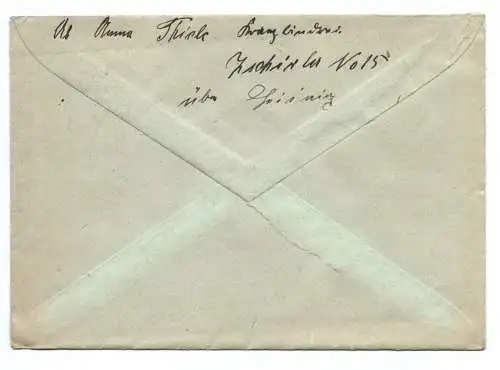 Ab Anna Thiele Kranzbinderei
Zschirla No 15
über Leisnig